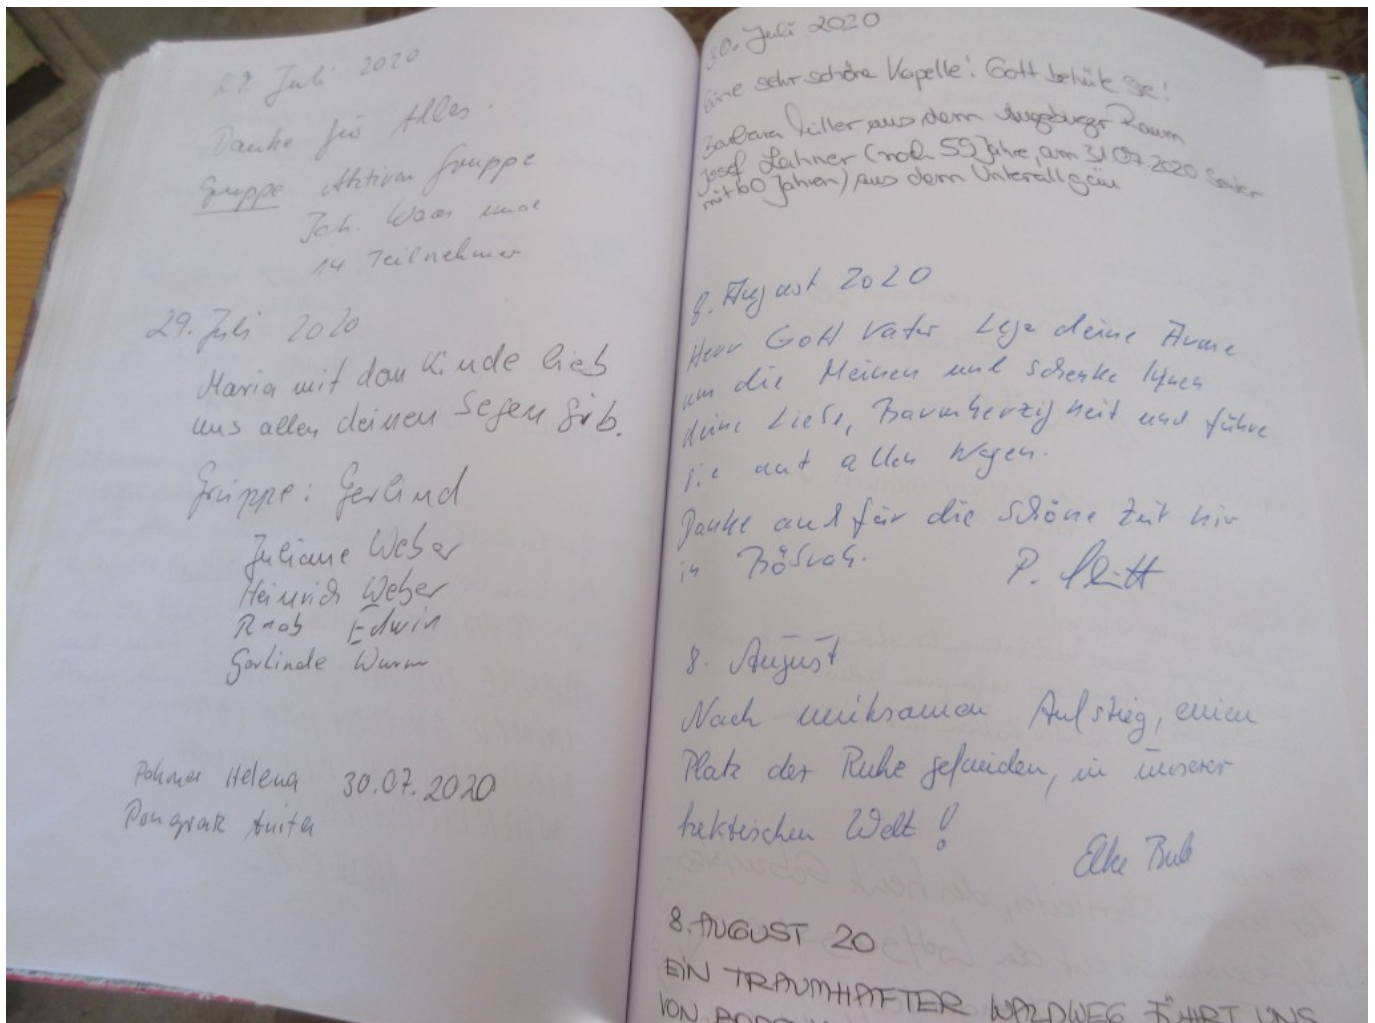 Juli 2020
Danke für Alles.
Gruppe Aktiven Gruppe
Joh. Waas und
14 Teilnehmer
29. Juli 2020
Maria mit dem Kinde lieb
uns allen deinen Segen gib.
Gruppe: Gerlind
Juliane Weber
Heinrich Weber
Raab Edwin
Gerlinde Wurm
Helena 30.07.2020
Pongratz Anita
30. Juli 2020
Eine sehr schöne Kapelle! Gott behüte Sie!
Barbara aus dem Augsburger Raum
Josef Lahner (noch 59 Jahre, am 31.07.2020
mit 60 Jahren) aus dem Unterallgäu
8. August 2020
Herr Gott Vater Lege deine Arme
um die Meinen und schenke Ihnen
deine Liebe, Barmherzigkeit und führe
sie auf allen Wegen.
Danke auch für die schöne Zeit hier
in
P.
8. August
Nach mühsamen Aufstieg, einen
Platz der Ruhe gefunden, in unserer
hektischen Welt!
Elke Bub
8. AUGUST 20
EIN TRAUMHAFTER WALDWEG FÜHRT UNS
VON